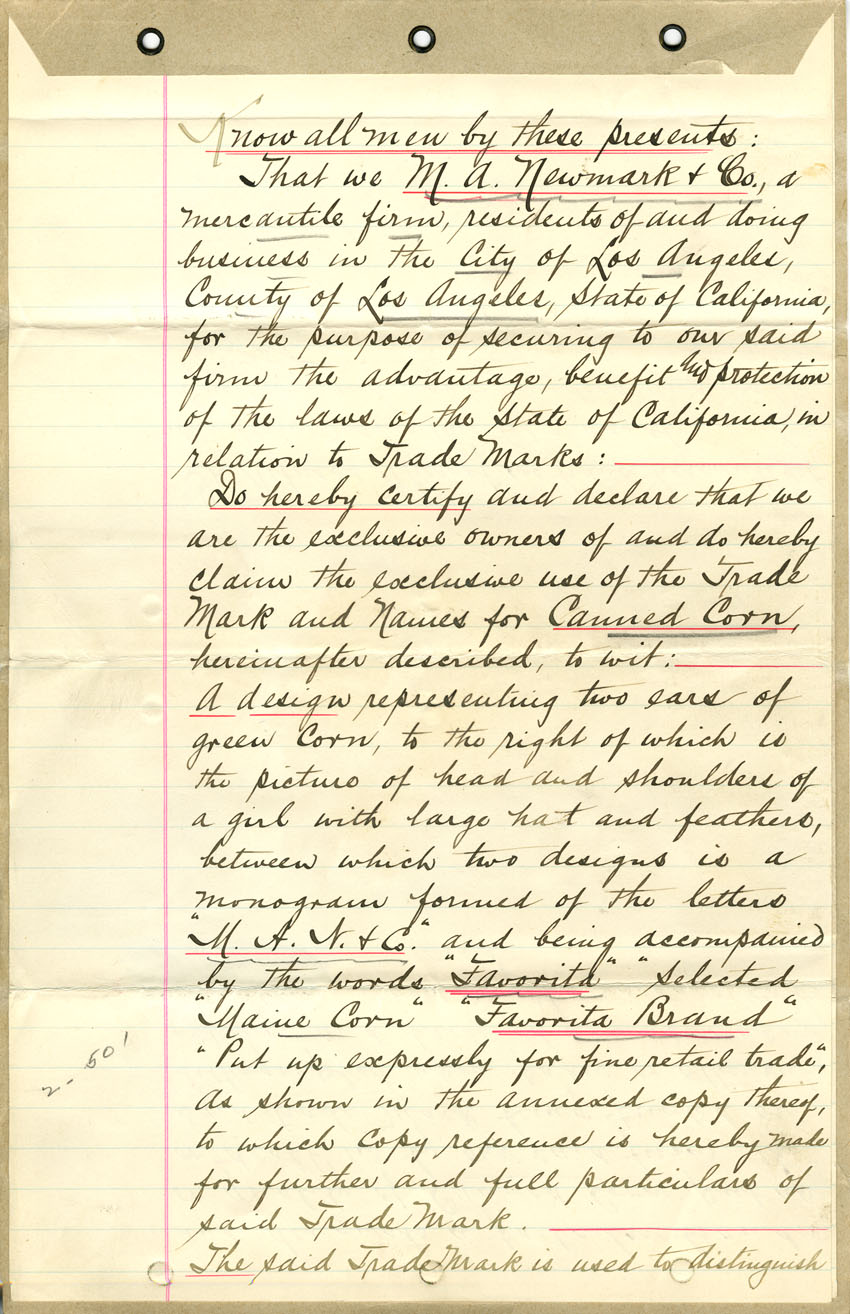 Know all men by these presents:
That we M. A. Newmark & Co., a
mercantile firm, residents of and doing
business in the City of Los Angeles,
County of Los Angeles, State of California,
for the purpose of securing to our said
firm the advantage, benefit and protection
of the laws of the State of California, in
relation to Trade Marks:
Do hereby certify and declare that we
are the exclusive owners of and do hereby
claim the exclusive use of the Trade
Mark and Names for Canned Corn,
hereinafter described, to wit:
A design representing two ears of
green Corn, to the right of which is
the picture of head and shoulders of
a girl with large hat and feathers,
between which two designs is a
monogram formed of the letters
"M. A. N. & Co." and being accompanied
by the words "Favorita" "Selected
"Maine Corn" "Favorita Brand"
"Put up expressly for fine retail trade",
as shown in the annexed copy thereof,
to which Copy reference is hereby made
for further and full particulars of
said Trade Mark.
The said Trade Mark is used to distinguish
2-50'